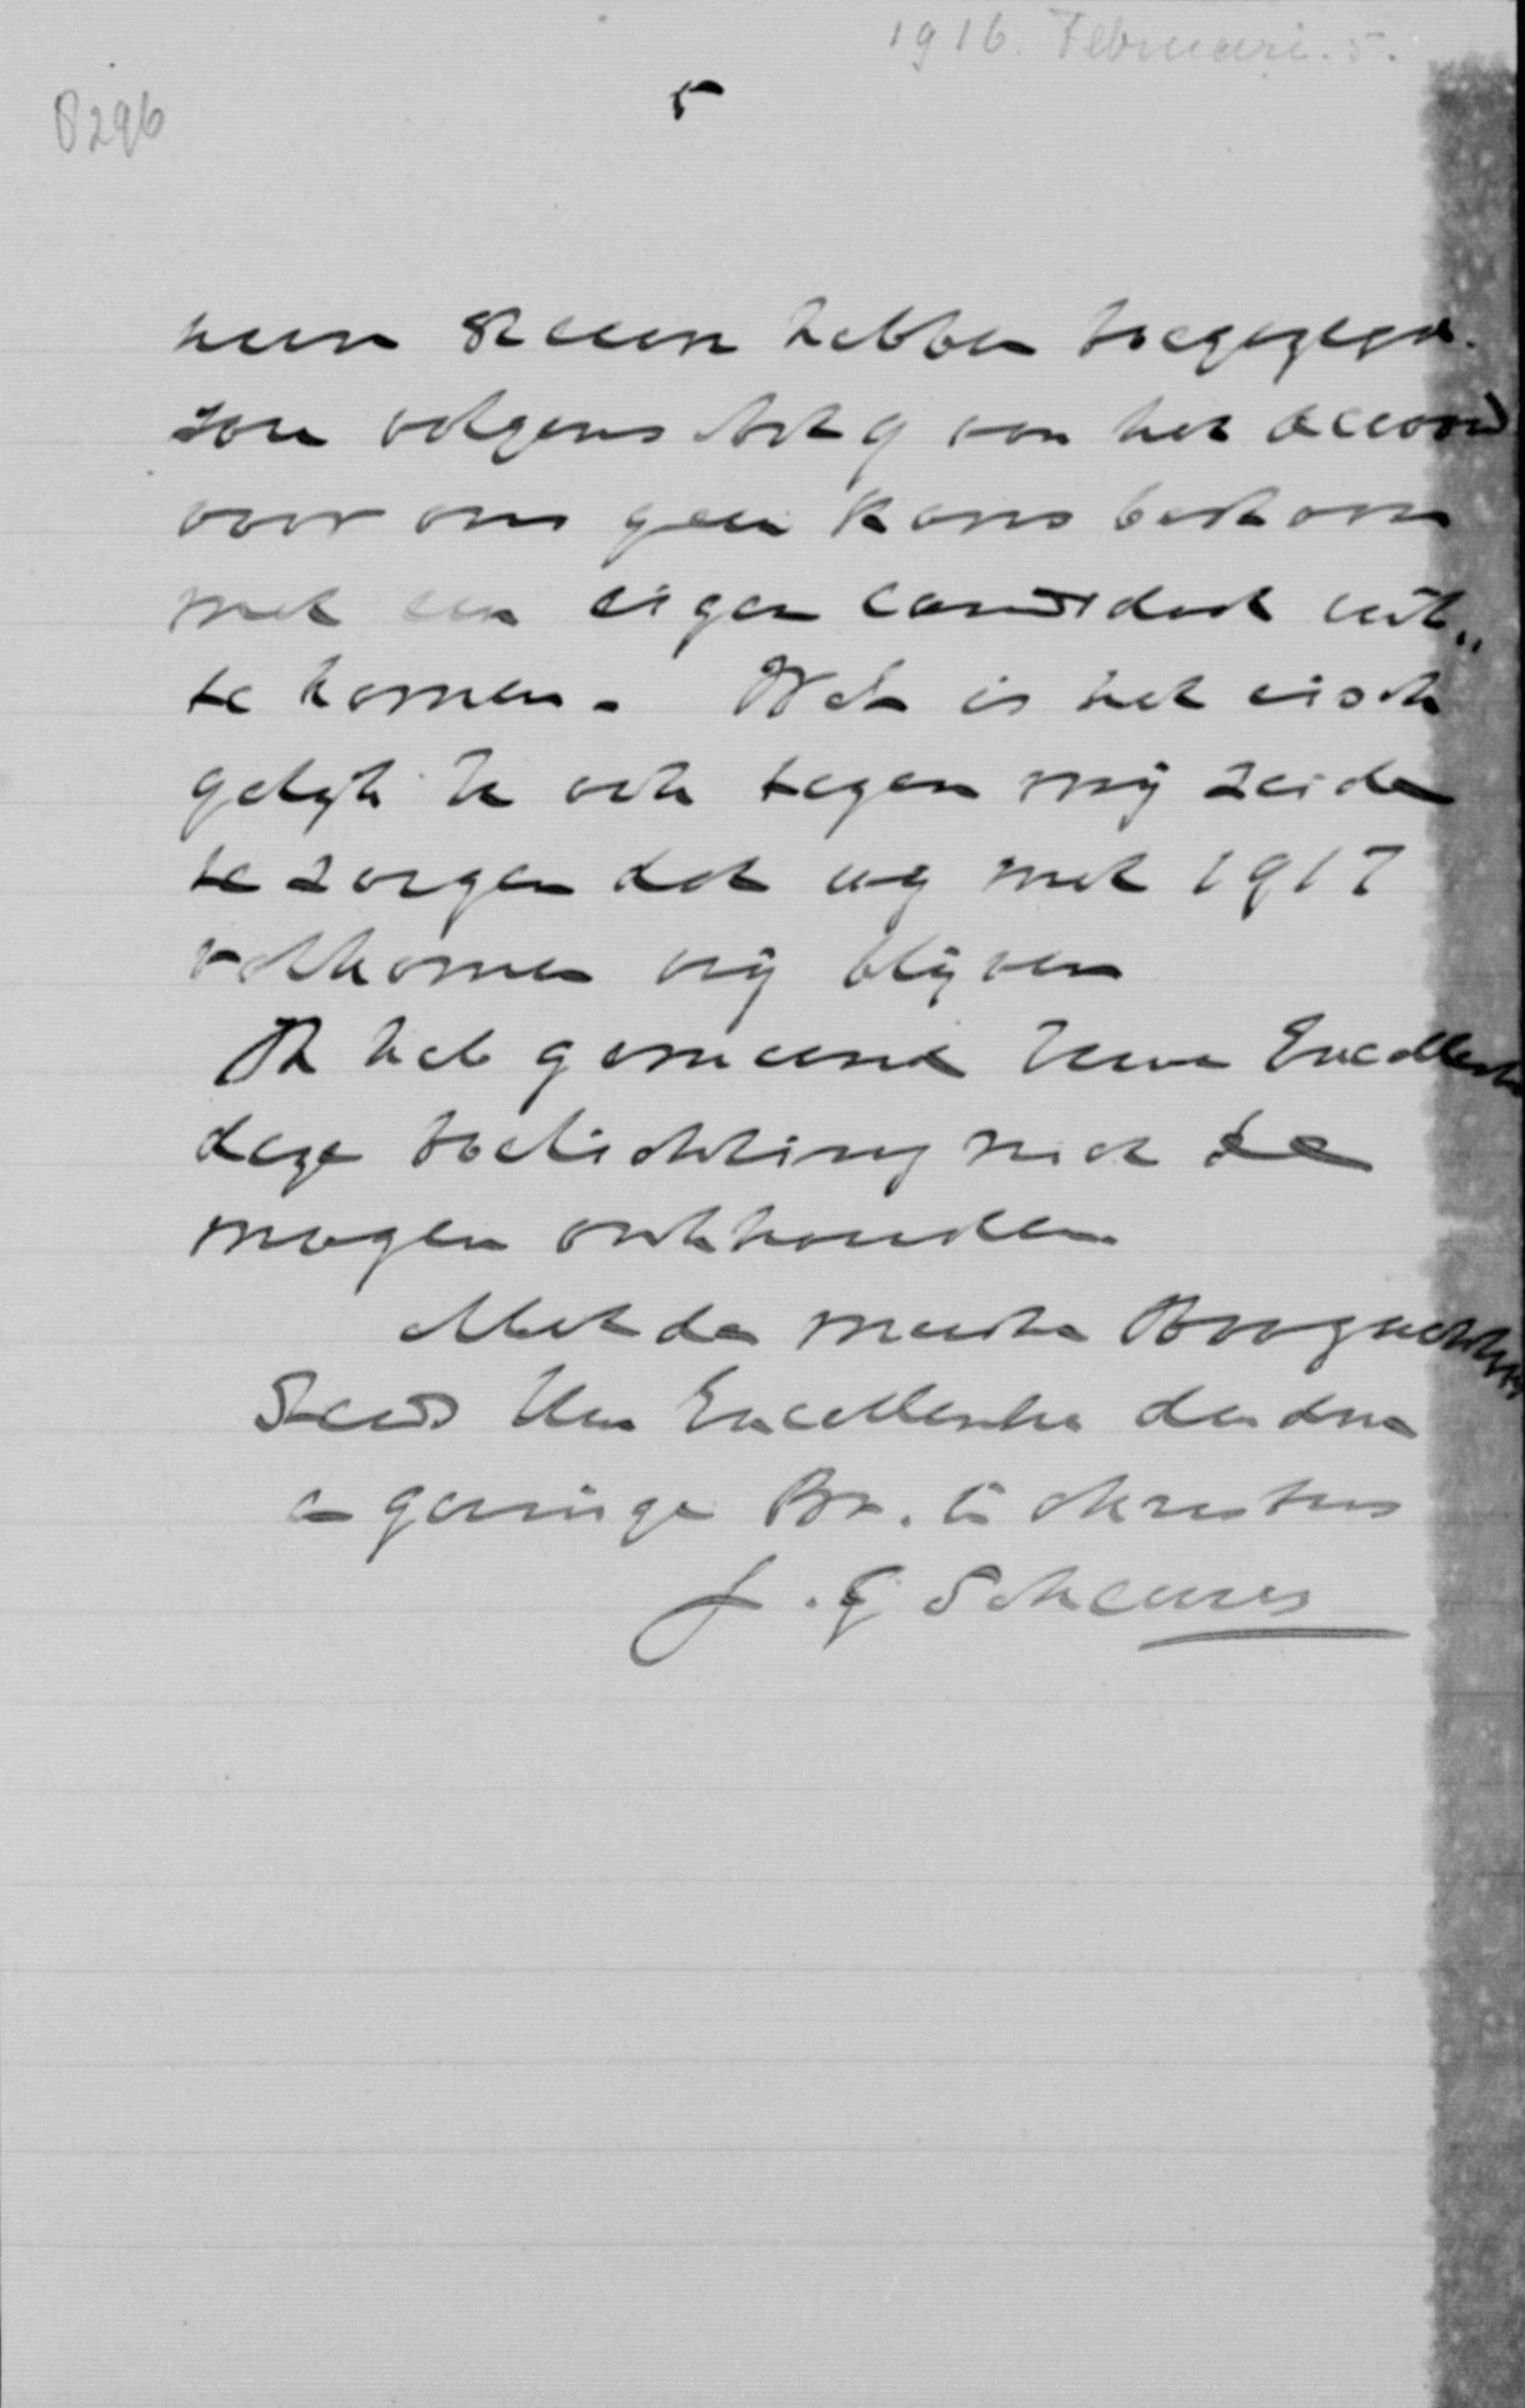 1916. Februari. 5.
8296
5
hun steun hebben toegezegd.
zou volgens Art 9 van het accoord
voor ons geen kans bestaan
met een eigen candidaat uit
te komen. Wel is het eisch
gelijk U ook tegen mij zeide
te zorgen dat wij met 1917
volkomen vrij blijven
Ik heb gemeend Uwe Excellentie
deze toelichting niet te
mogen onthouden
Met de meeste Hoogachting
Steeds Uw Excellentie dw dnr
en geringe Br. in Christus
J. G Scheurer